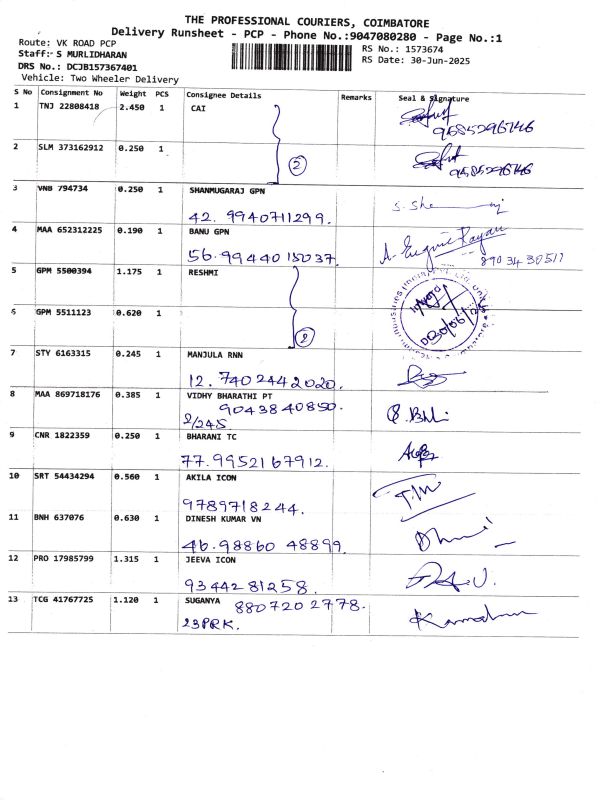 THE PROFESSIONAL COURIERS, COIMBATORE
Delivery Runsheet - PCP - Phone No.:9047080280 - Page No.:1
Route: VK ROAD PCP
RS No.: 1573674
Staff: S MURLIDHARAN
RS Date: 30-Jun-2025
DRS No.: DCJB157367401
Vehicle: Two Wheeler Delivery
S No Consignment No Weight PCS Consignee Details Remarks Seal & Signature
1 TNJ 22808418 2.450 1 CAI
9585296746
2 SLM 373162912 0.250 1
2
9585296746
3 VNB 794734 0.250 1 SHANMUGARAJ GPN
42. 9940711299.
4 MAA 652312225 0.190 1 BANU GPN
56. 9944015037.
8903430511
5 GPM 5500394 1.175 1 RESHMI
6 GPM 5511123 0.620 1
2
7 STY 6163315 0.245 1 MANJULA RNN
12. 7402442020.
8 MAA 869718176 0.385 1 VIDHY BHARATHI PT
9043840850.
2/245
9 CNR 1822359 0.250 1 BHARANI TC
77. 9952167912.
10 SRT 54434294 0.560 1 AKILA ICON
9789718244.
11 BNH 637076 0.630 1 DINESH KUMAR VN
46. 98860 48899.
12 PRO 17985799 1.315 1 JEEVA ICON
9344281258.
13 TCG 41767725 1.120 1 SUGANYA 8807202778.
23PRK.